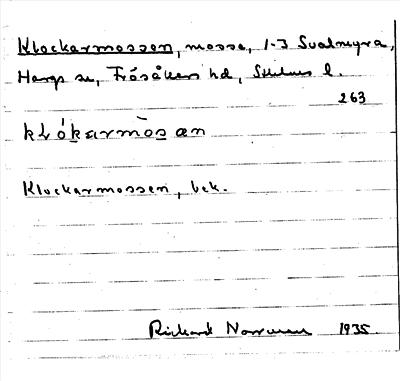 Klockarmossen, mosse, 1-3 Svalmyra,
Hargs sn, Frösåkers hd, Sthlms l.
263
klókarmòsan
Klockarmossen, bek.
Rickard 1935